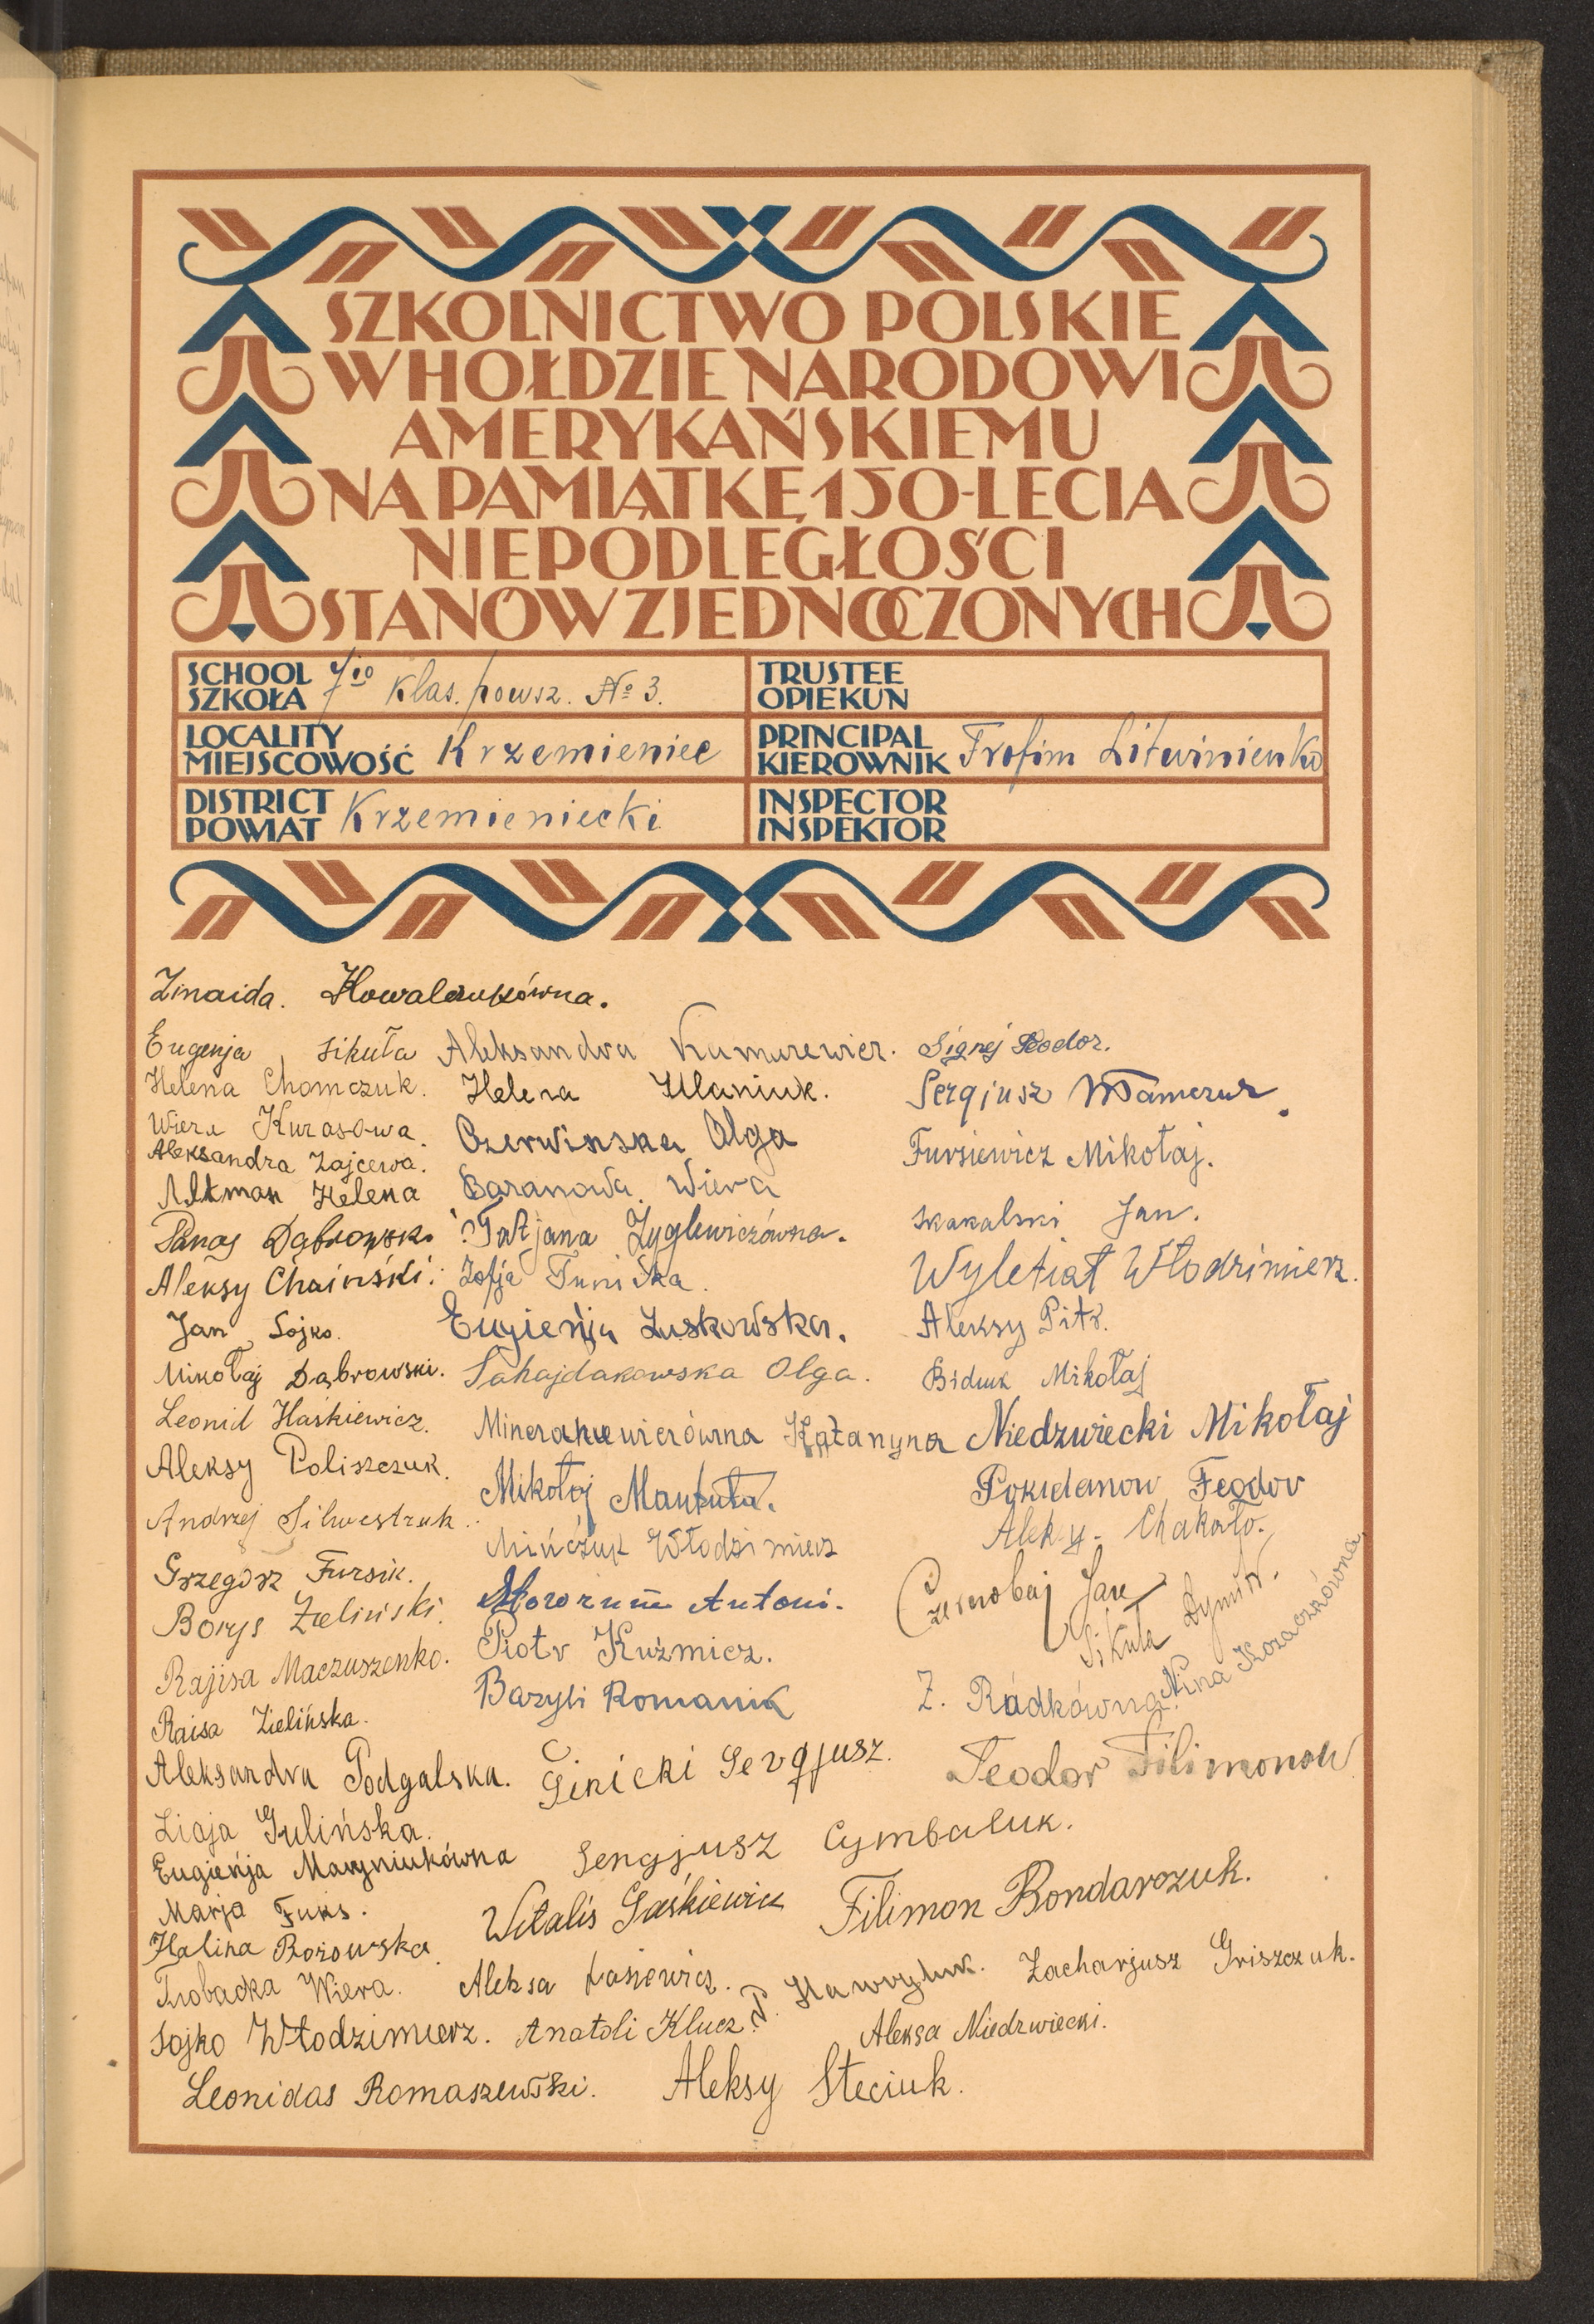 SZKOLNICTWO POLSKIE
W HOŁDZIE NARODOWI
AMERYKAŃSKIEMU
NA PAMIĄTKĘ 150-LECIA
NIEPODLEGŁOŚCI
STANÓW ZJEDNOCZONYCH
SCHOOL
SZKOŁA 7io klas. powsz. № 3.
TRUSTEE
OPIEKUN
LOCALITY
MIEJSCOWOŚĆ Krzemieniec
PRINCIPAL
KIEROWNIK Trofim Litwinienko
DISTRICT
POWIAT Krzemieniecki
INSPECTOR
INSPEKTOR
Zinaida. Kowalczukówna.
Eugenja Sikuła
Helena Chomczuk.
Wiera Kurasowa.
Aleksandra Zajcewa.
Altman Helena
Panas Dąbrowski
Aleksy Chaiński.
Jan Sojko.
Mikołaj Dąbrowski.
Leonid Haśkiewicz.
Aleksy Poliszczuk.
Andrzej Silwestruk.
Grzegórz Fursik.
Borys Zieliński.
Rajisa Maczuszenko.
Raisa Zielińska.
Aleksandra Podgalska.
Lidja Gulińska.
Eugieńja Maryniukówna
Marja Fuks.
Halina Borowska.
Wiera.
Sojko Włodzimierz.
Leonidas Romaszewski.
Aleksandra
Helena Ulaniuk.
Czerwinska Olga
Baranowa Wiera
Tatjana Żyglewiczówna.
Zofja
Eugieńja Luskowska.
Sahajdakowska Olga.
Katarzyna
Mikołaj
Mińczuk Włodzimierz
Antoni.
Piotr Kuźmicz.
Bazyli Romanik
Sergjusz.
Sergjusz Cymbaluk.
Witalis Gaśkiewicz
Aleksa
Anatoli Klucz.
P. Hawryluk.
Aleksy Steciuk.
Sergjusz
Fursiewicz Mikołaj.
Skakalski Jan.
Wyletiat Włodzimierz.
Aleksy Pitr.
Biduk Mikołaj
Niedzwiecki Mikołaj
Pokidanow Feodor
Aleksy Chakało.
Czernobaj Jan
Sikuła Dymitr.
Nina Kozaczkówna.
Z. Radkówna.
Teodor Filimonow
Filimon Bondarczuk.
Zacharjusz Griszczuk.
Aleksa Niedzwiecki.